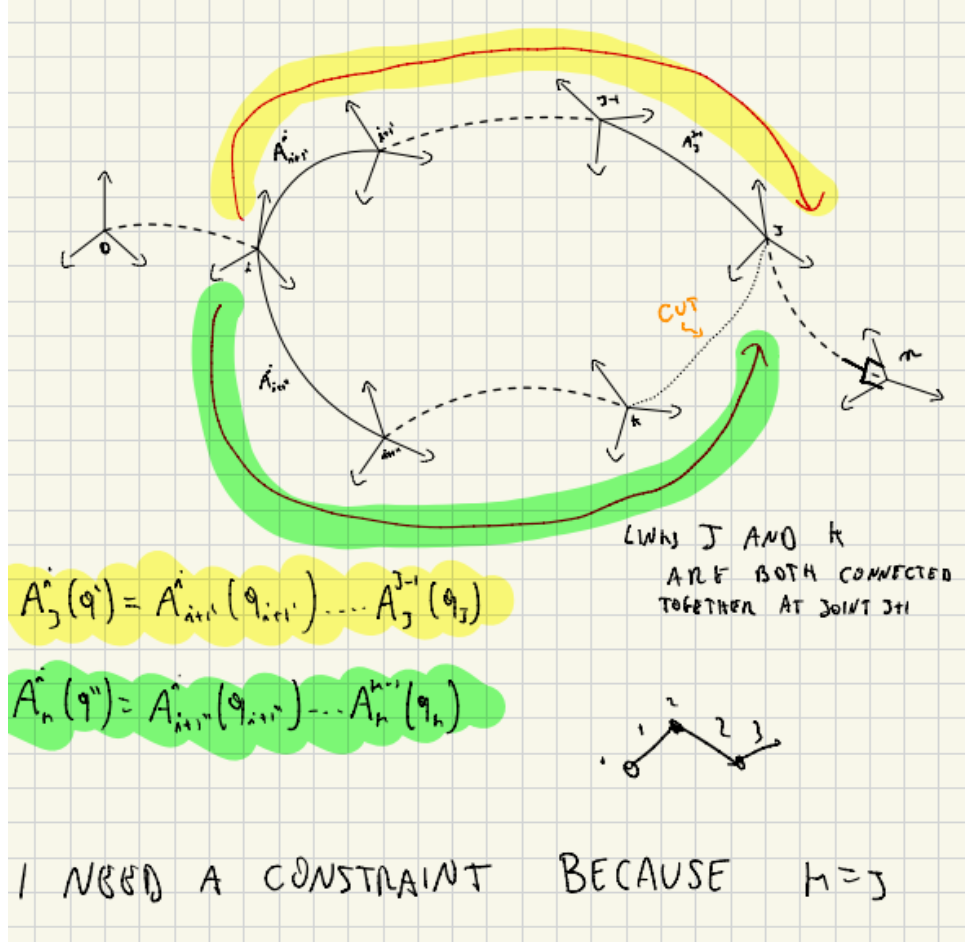 J-1
i+1'
A^i_{i+1'}
A^{J-1}_J
0
i
J
CUT
n
A^i_{i+1''}
k
i+1''
LINKS J AND K
ARE BOTH CONNECTED
TOGETHER AT JOINT J+1
A^i_J(q') = A^i_{i+1'}(q_{i+1'}) .... A^{J-1}_J(q_J)
A^i_k(q'') = A^i_{i+1''}(q_{i+1''}) ... A^{k-1}_k(q_k)
2
1 2 3
I NEED A CONSTRAINT BECAUSE K=J